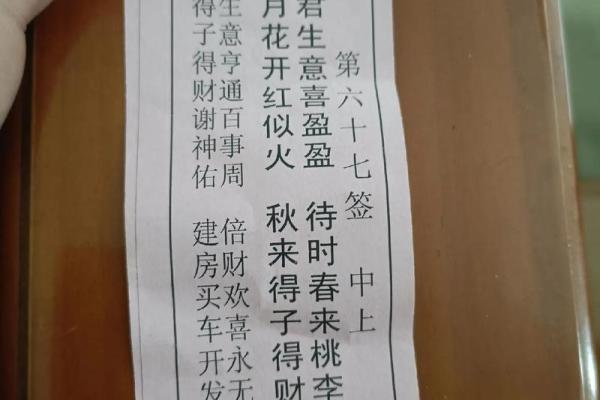 第六十七签 中上
君生意喜盈盈 待时春来桃李
月花开红似火 秋来得子得财
生意亨通百事周 倍财欢喜永无
得子得财谢神佑 建房买车开发